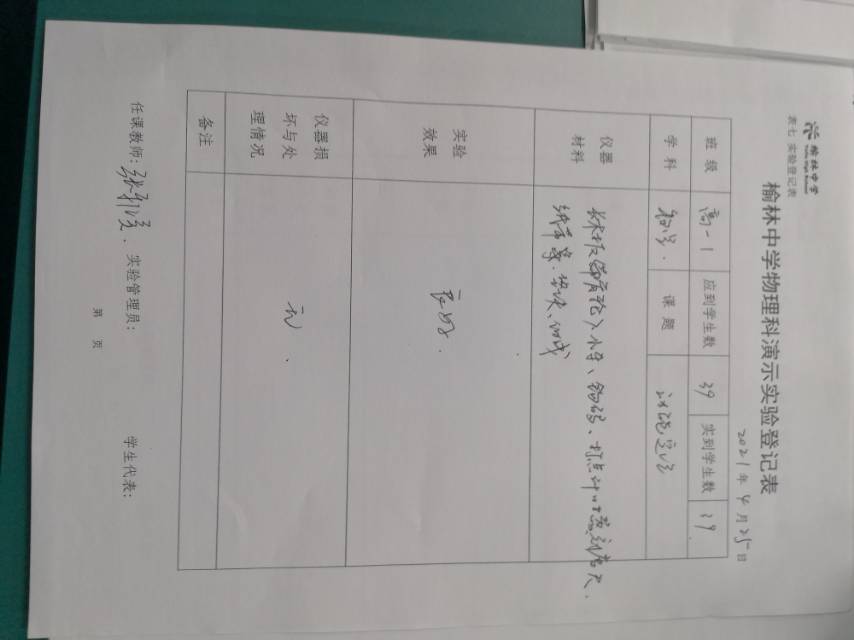 榆林中学
表七 实验登记表
榆林中学物理科演示实验登记表
2021年4月25日
班级 高一1 应到学生数 39 实到学生数 39
学科 物理. 课题 动能定理
仪器材料 长木板(带滑轮)小车、钩码、打点计时器、刻度尺、
纸带、垫块、细线
实验效果 良好.
仪器损坏与处理情况 无.
备注
任课教师: 实验管理员: 学生代表:
第 页